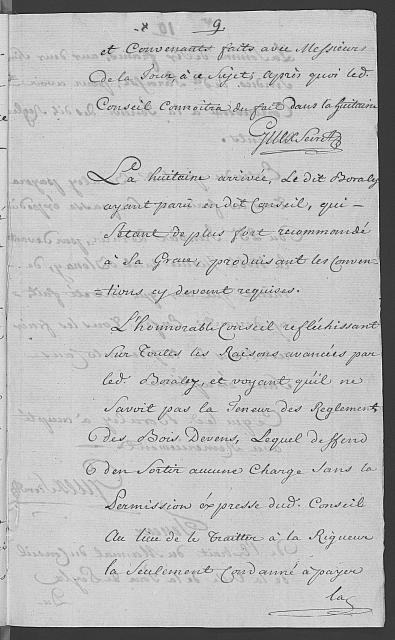 9
et Convenants faits avec Messieurs
de la Tour à ce Sujet, après quoi led.
Conseil Connoitra du fait dans la huitaine
La huitaine arrivée, Le dit Boraley
ayant parû en dit Conseil, qui -
Setant de plus fort recommondé
à Sa Grace, produisant les Conven-
=tions cy devant requises.
L'honnorable Conseil reflêchissant
Sur Toutes les Raisons avancées par
led. Boraley, et voyant qu'il ne
Savoit pas la Teneur des Reglement
des Bois Devens, Lequel deffend
d'en Sortir aucune Charge Sans la
Permission éxpresse dud. Conseil
Au lieu de le Traitter à la Rigueur
la Seulement Condanné à payer
la